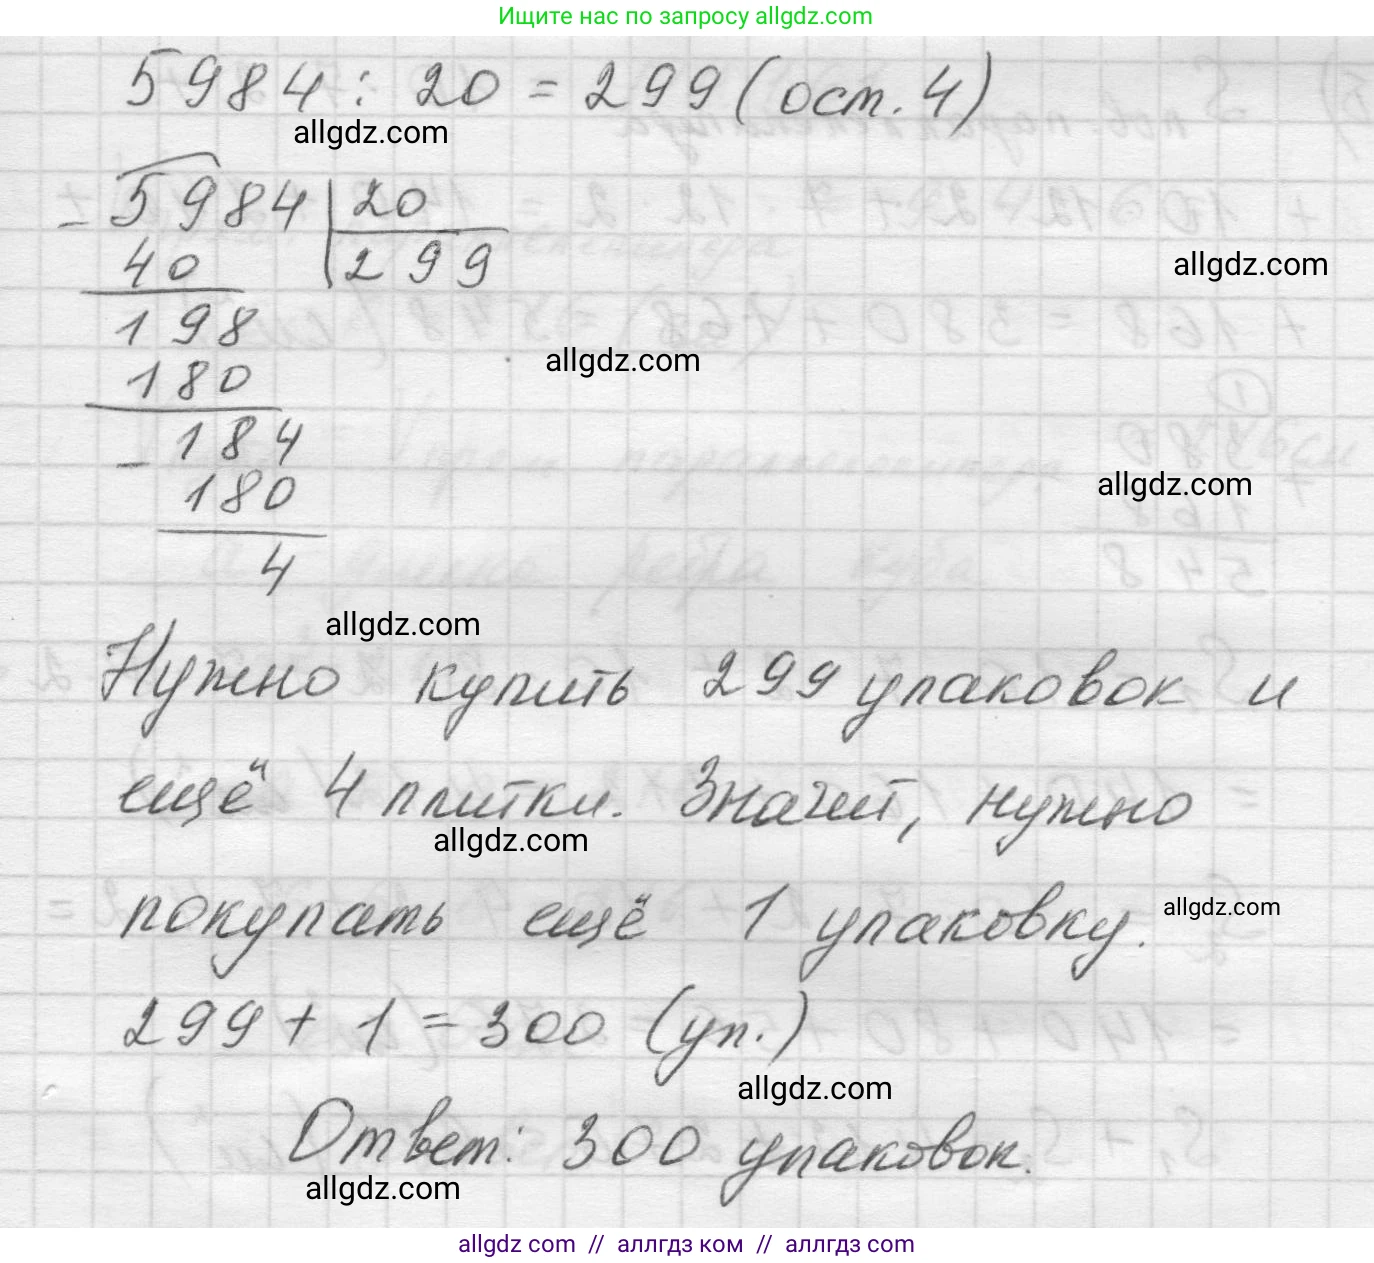 Ищите нас по запросу allgdz.com
5984 : 20 = 299 (ост. 4)
allgdz.com
- 5984 | 20
40 | 299
allgdz.com
198
allgdz.com
180
- 184
180
allgdz.com
4
allgdz.com
Нужно купить 299 упаковок и
ещё 4 плитки. Значит, нужно
allgdz.com
покупать ещё 1 упаковку.
allgdz.com
299 + 1 = 300 (уп.)
allgdz.com
Ответ: 300 упаковок.
allgdz.com
allgdz com // аллгдз ком // аллгдз com